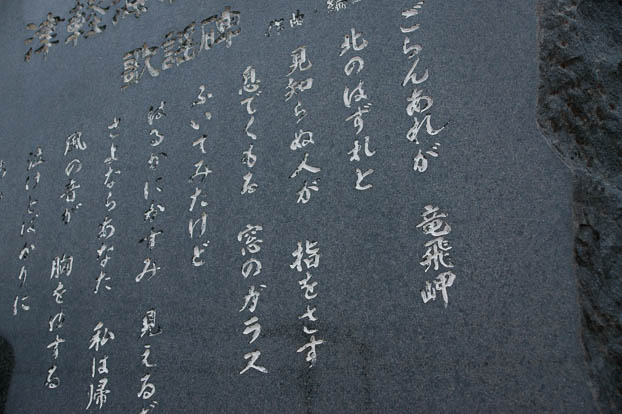 津軽海
歌謡碑
作曲
編
ごらんあれが 竜飛岬
北のはずれと
見知らぬ人が 指をさす
息でくもる 窓のガラス
ふいてみたけど
はるかにかすみ 見えるだ
さよならあなた 私は帰
風の音が 胸をゆする
泣けとばかりに